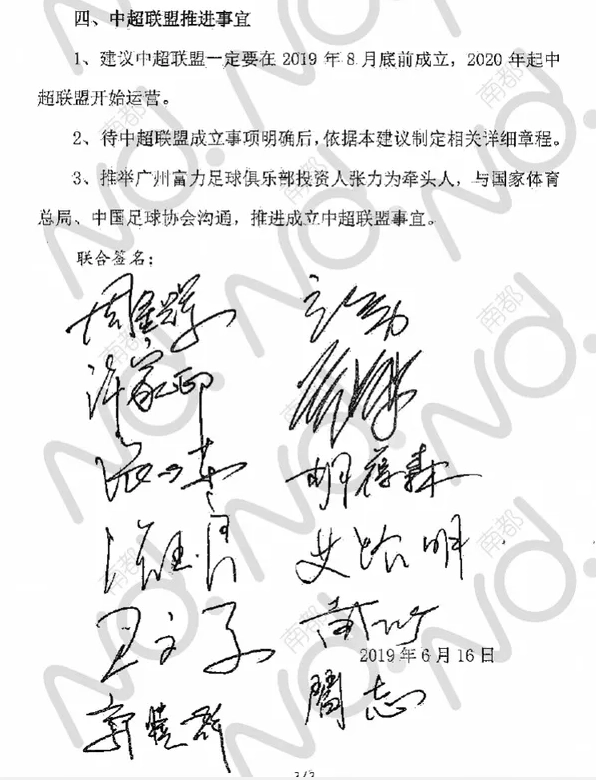 四、中超联盟推进事宜
1、建议中超联盟一定要在 2019 年 8 月底前成立，2020 年起中
超联盟开始运营。
2、待中超联盟成立事项明确后，依据本建议制定相关详细章程。
3、推举广州富力足球俱乐部投资人张力为牵头人，与国家体育
总局、中国足球协会沟通，推进成立中超联盟事宜。
联合签名：
周金辉
许家印
胡葆森
艾路明
2019 年 6 月 16 日
3/3
南都
No.